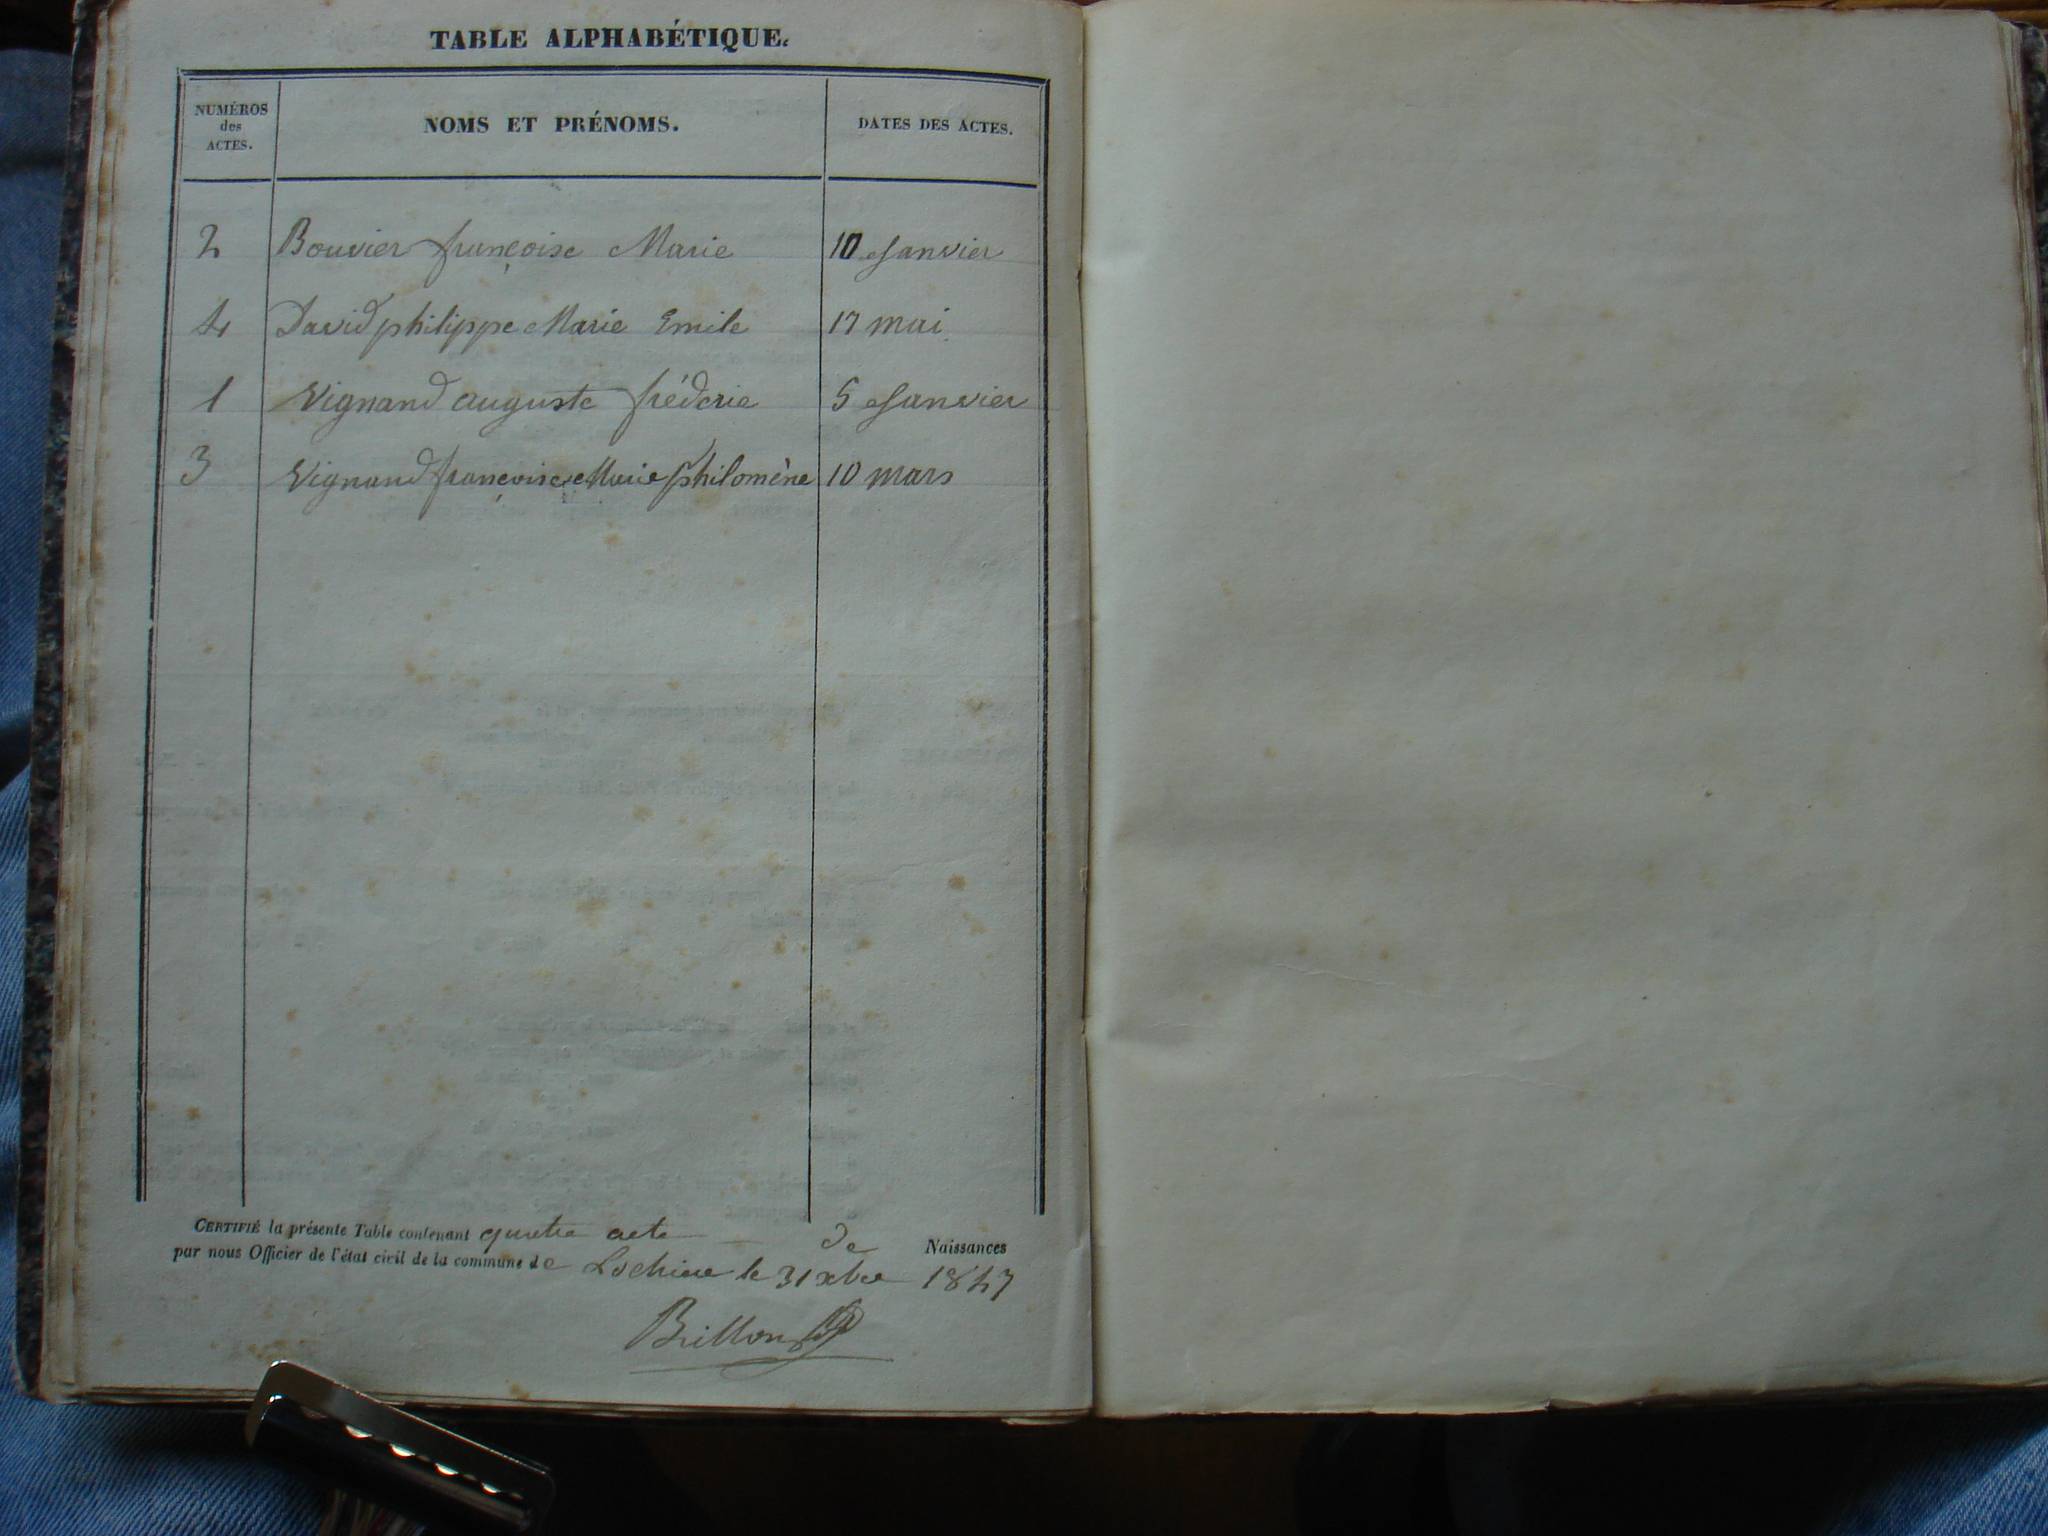 TABLE ALPHABÉTIQUE.
NUMÉROS
des
ACTES.
NOMS ET PRÉNOMS.
DATES DES ACTES.
2 Bouvier françoise Marie 10 Janvier
4 David philippe Marie Emile 17 mai
1 Vignand auguste fréderic 5 Janvier
3 Vignand françoise Marie philomène 10 mars
CERTIFIÉ la présente Table contenant quatre acte de Naissances
par nous Officier de l'état civil de la commune de Lochieu le 31 xbre 1847
Brillon